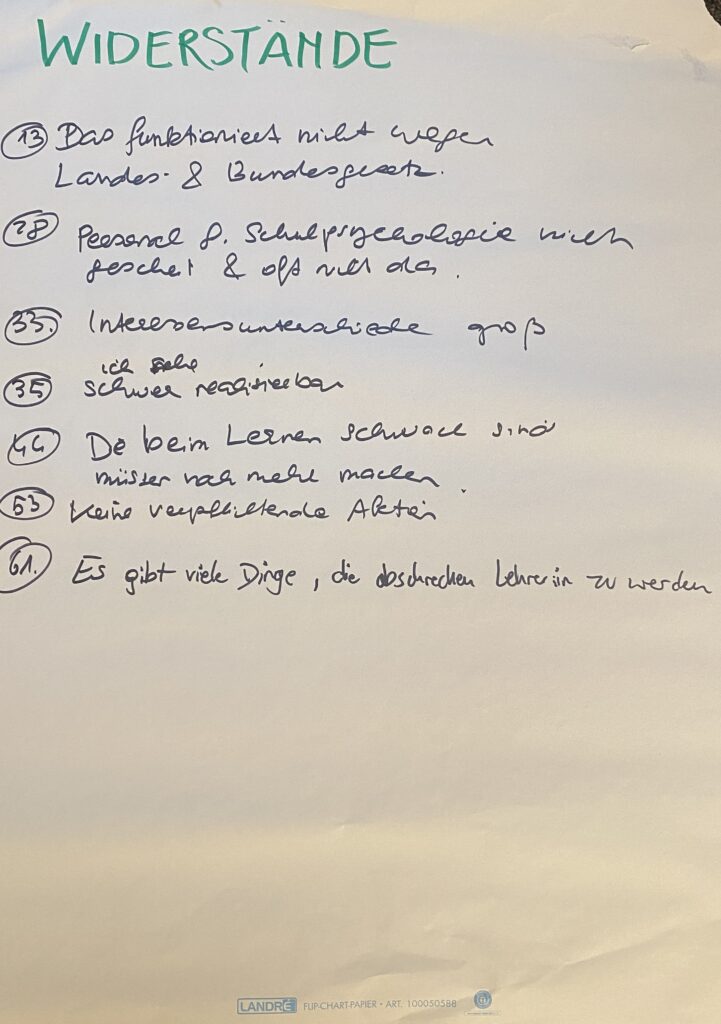 WIDERSTÄNDE
13 Das funktioniert nicht wegen
Landes- & Bundesgesetz.
28 Personal f. Schulpsychologie nicht
& oft nicht da.
33. Interessensunterschiede groß
ich sehe
35 schwer realisierbar
44 Die beim Lernen schwach sind
müssen noch mehr machen
53 Keine verpflichtende
61. Es gibt viele Dinge, die abschrecken Lehrer:in zu werden
LANDRÉ FLIP-CHART-PAPIER • ART. 100050588